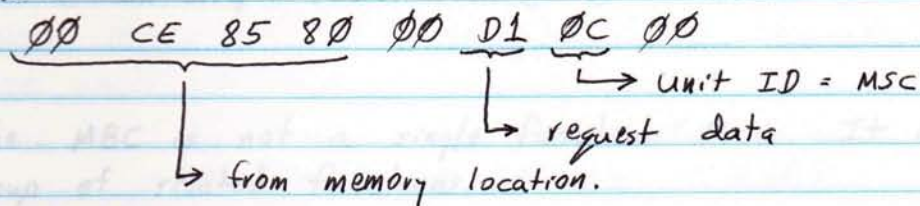 ØØ CE 85 8Ø ØØ D1 ØC ØØ
→ Unit ID = MSC
→ request data
→ from memory location.